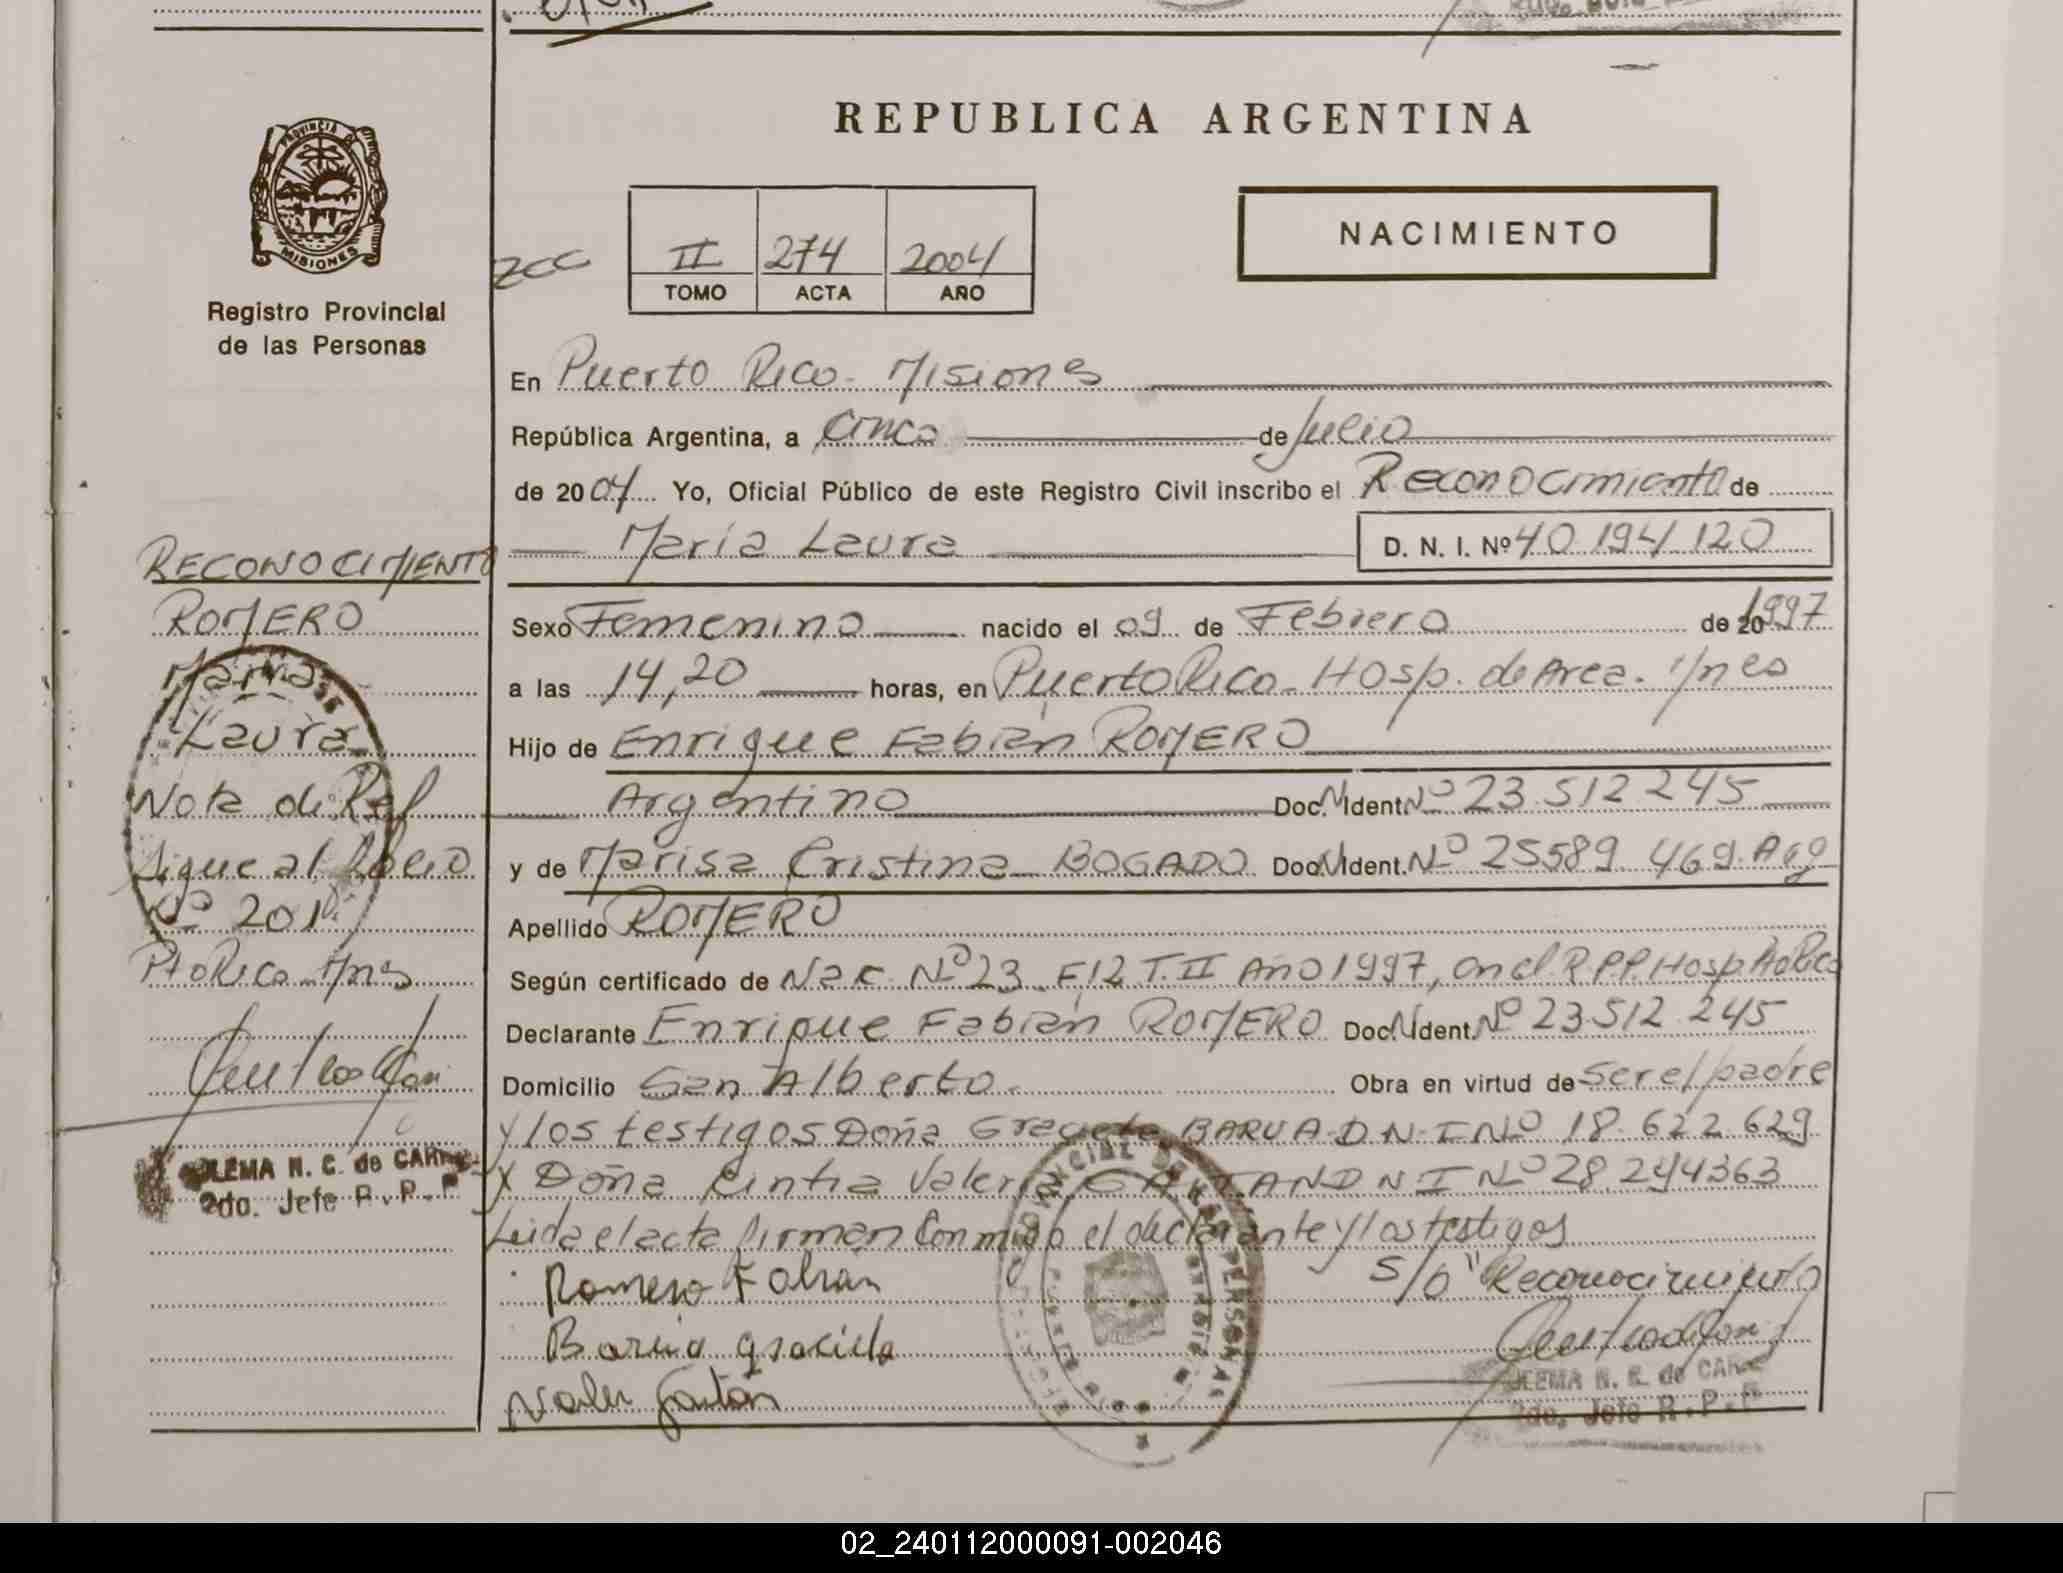 REPUBLICA ARGENTINA
PROVINCIA DE
MISIONES
Registro Provincial
de las Personas
II 274 2004
TOMO ACTA AÑO
NACIMIENTO
En Puerto Rico - Misiones
República Argentina, a Cinco de Julio
de 2004 Yo, Oficial Público de este Registro Civil inscribo el Reconocimiento de
María Laura D. N. I. Nº 40 194 120
Sexo Femenino nacido el 09 de Febrero de 20 1997
a las 14,20 horas, en Puerto Rico - Hosp. de Area. Mnes
Hijo de Enrique Fabián ROMERO
Argentino Doc. N Ident. Nº 23 512 245
y de Marisa Cristina BOGADO Doc. N Ident. Nº 25589 469. Arg
Apellido ROMERO
Según certificado de Nac. Nº 23 F12 T. II Año 1997, en el R.P.P. Hosp. Pto Rico
Declarante Enrique Fabián ROMERO Doc. N Ident. Nº 23 512 245
Domicilio San Alberto. Obra en virtud de ser el padre
y los testigos Doña Graciela BARUA D N I Nº 18 622 629
y Doña Cintia Valeria GAITAN D N I Nº 28 244363
Leida el acta firman conmigo el declarante y los testigos
S/b "Reconocimiento
Romero Fabian
Barua Graciela
Valer Gaitán
ULEMA N. C. de CAR
2do. Jefe R. P. P
RECONOCIMIENTO
ROMERO
Maria
Laura
Nota de Ref
sigue al folio
Nº 201
Pto Rico Mnes
ULEMA N. C. de CAR
2do. Jefe R. P. P
02_240112000091-002046